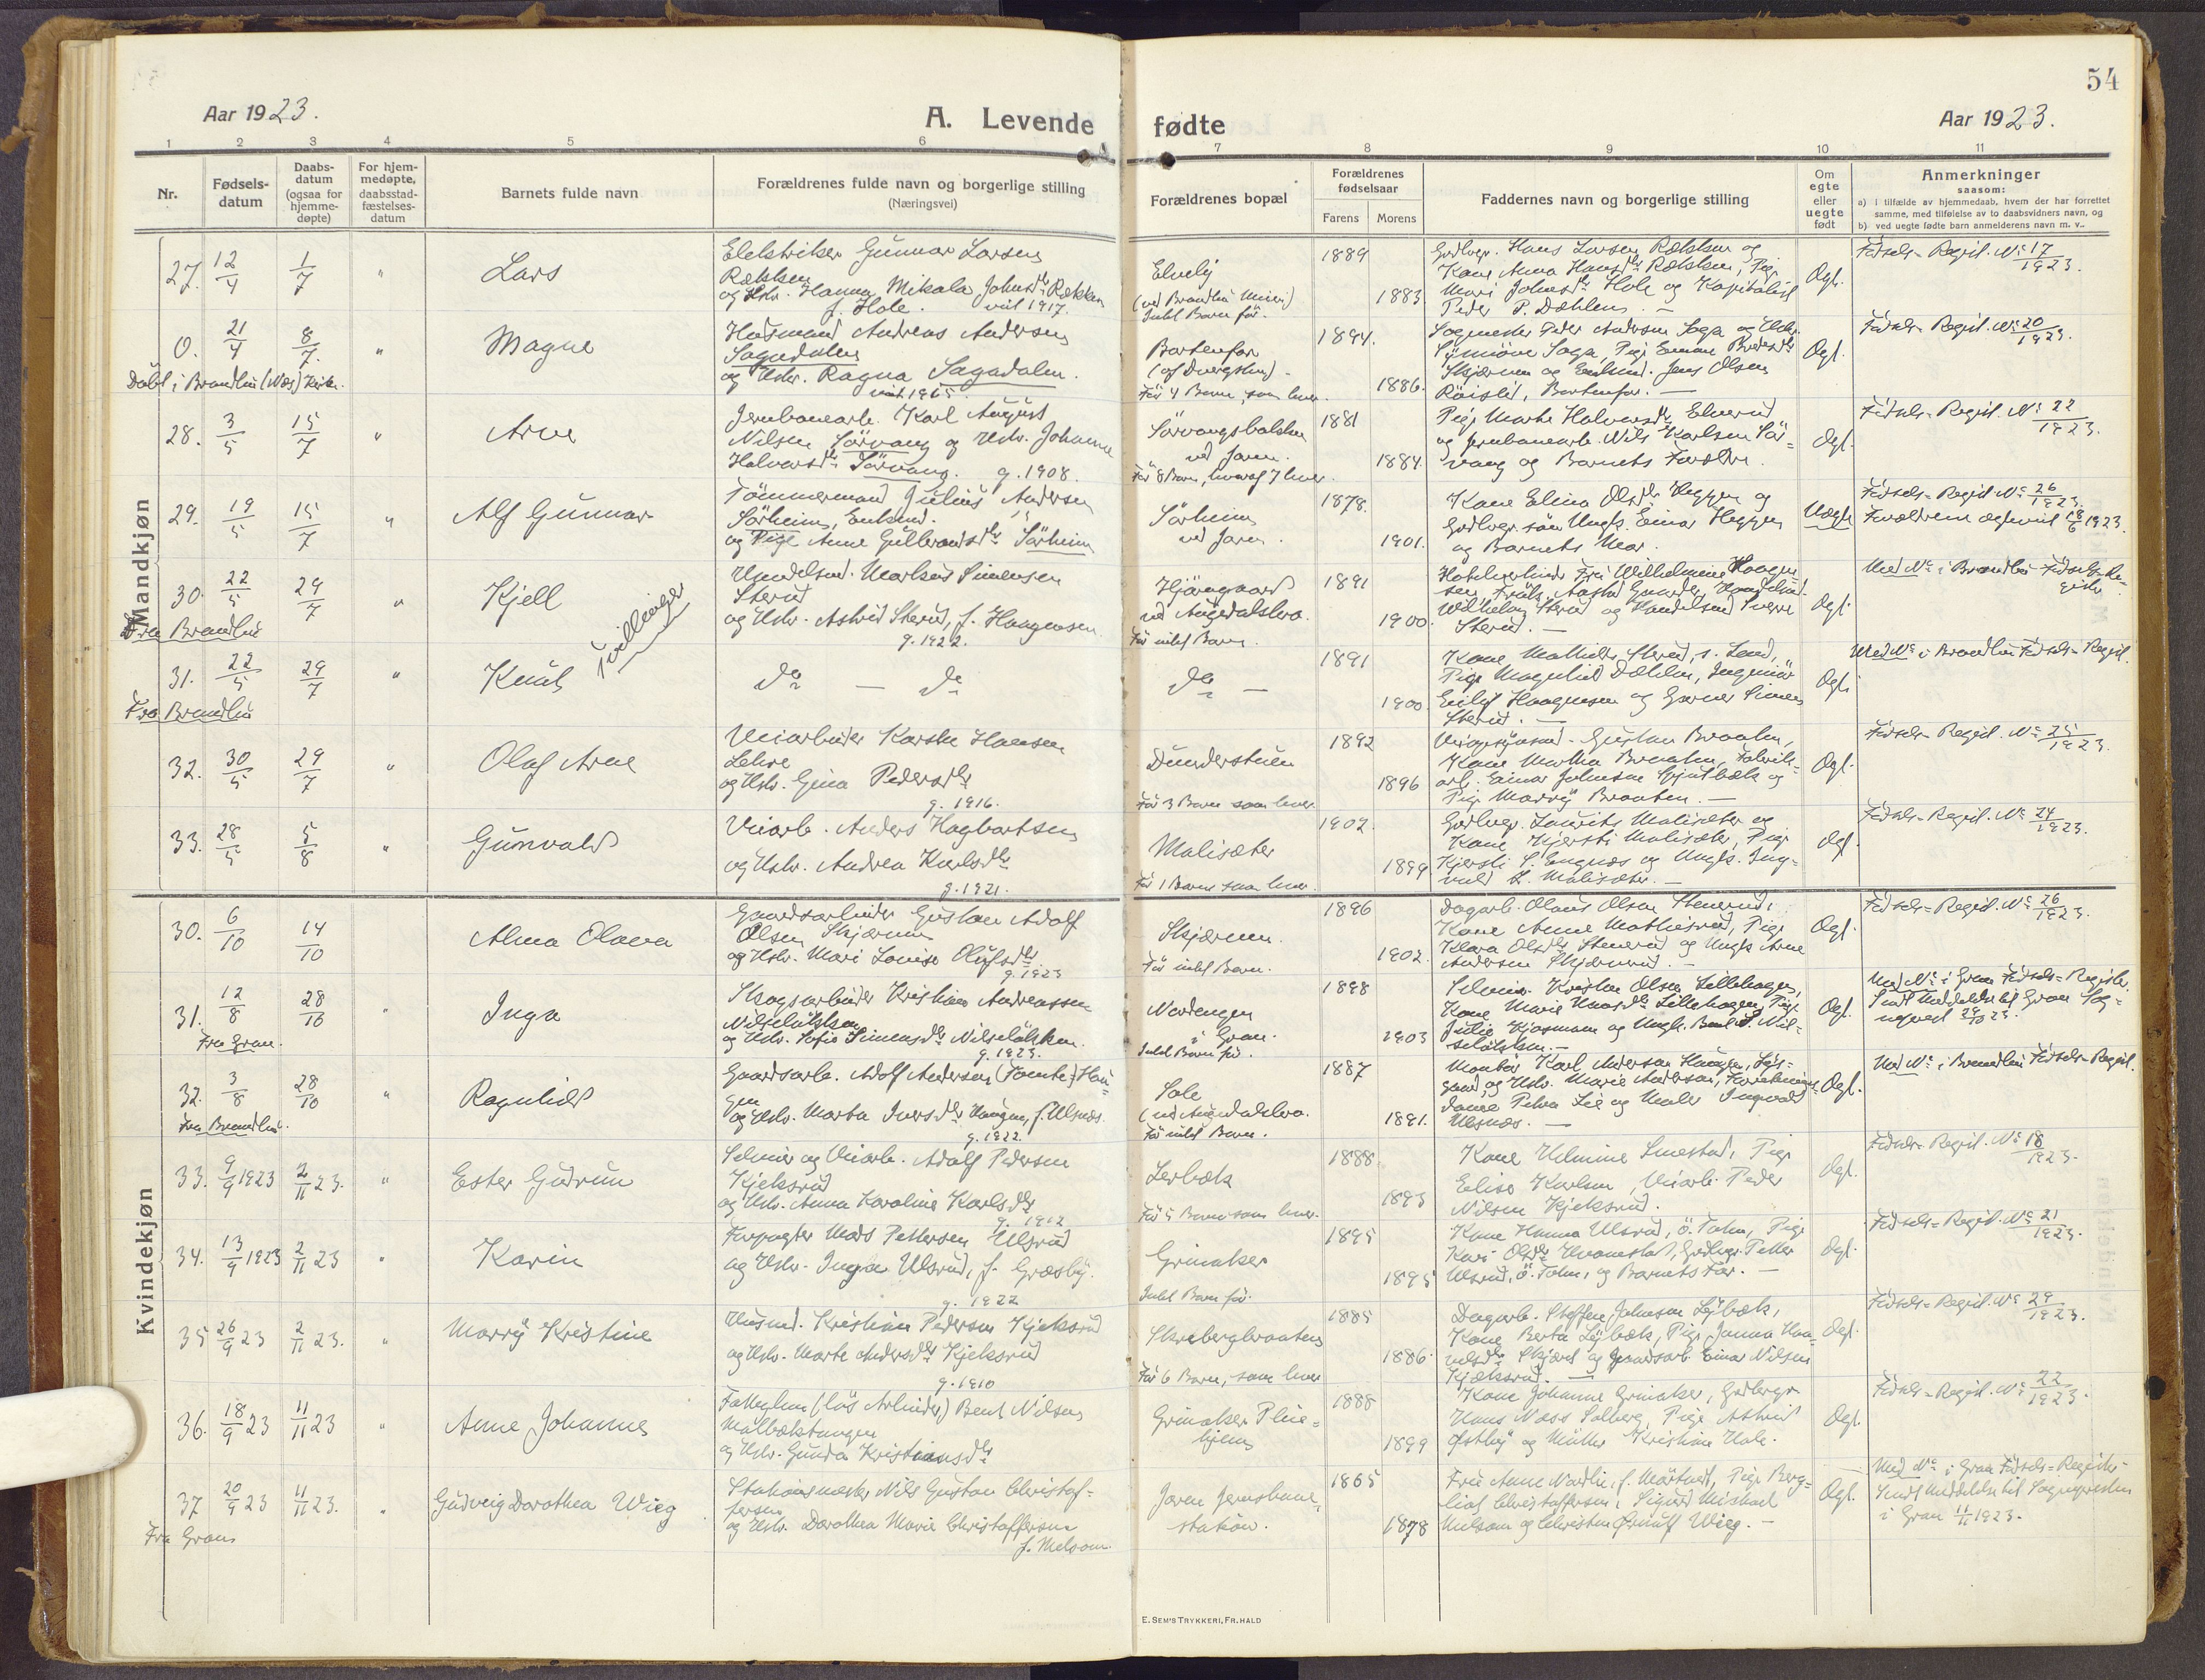 54
Aar 1923.
A. Levende fødte
Aar 1923.
1 2 3 4 5 6 7 8 9 10 11
Nr.
Fødsels-
datum
Daabs-
datum
(ogsaa for
hjemme-
døpte)
For hjem-
medøpte,
daabsstad-
fæstelses-
datum
Barnets fulde navn
Forældrenes fulde navn og borgerlige stilling
(Næringsvei)
Forældrenes bopæl
Forældrenes
fødselsaar
Farens Morens
Faddernes navn og borgerlige stilling
Om
egte
eller
uegte
født
Anmerkninger
saasom:
a) i tilfælde av hjemmedaab, hvem der har forrettet
samme, med tilføielse av to daabsvidners navn, og
b) ved uegte fødte barn anmelderens navn m. v..
Mandkjøn
27. 12/4 1/7 " Lars
Elektriker Gunnar Larsen
Rækken
og Hstr. Hanna Mikala Johnsdtr Rækken
f. Hole. viet 1917.
Elvely
(ved Brandbu Meieri)
Intet Barn før.
1889
1883
Grdbrgr. Hans Larsen Rækken og
Kone Anna Hansdtr Rækken, Pige
Mari Johnsdtr Hole og Kapitalist
Peder P. Dæhlen. —
Ægt.
Fødsels-Regist. No 17/1923.
0. 21/4 8/7. " Magne
Døbt i Brandbu (Næs) Kirke.
Husmand Andreas Andersen
Sagadalen
og Hstr. Ragna Sagadalen.
viet 1965.
Bortenfor
Før 4 Barn, som lever.
1894.
1886.
Sagmester Peder Andersen Saga og Hstr.
Røislid, Bortenfor. —
Ægt.
Fødsels-Regist. No 20/1923.
28. 3/5 15/7 " Arne
Jernbanearb. Karl August
Nilsen Sørvang og Hstr. Johanne
Halvorsdtr Sørvang. g. 1908.
Sørvangsbakken
ved Jaren.
Før 8 Barn, hvoraf 7 lever.
1881
1884.
Pige Marte Halvorsdtr Elverud
og Jernbanearb. Nils Karlsen Sør-
vang og Barnets Forældre.
Ægt.
Fødsels-Regist. No 22/1923.
29. 19/5 15/7 " Alf Gunnar
Tømmermand Julius Andersen
Sørheim, Enkemd.
og Pige Anne Gulbrandsdtr Sørheim
Sørheim
ved Jaren.
1878.
1901.
Kone Elina Olsdtr Heggen og
Grdbrgr. søn Ungk. Einar Heggen
og Barnets Mor.
Uægte
Fødsels-Regist. No 26/1923.
Forældrene ægteviet 18/6 1923.
30. 22/5 29/7 " Kjell
Fra Brandbu
Tvillinger
Handelsmd. Markus Simensen
Sterud
og Hstr. Astrid Sterud, f. Haagensen
g. 1922.
Hjørngaard
ved Augedalsbro.
Før intet Barn.
1891
1900.
Hotelvertinde Fru Wilhelmine Haagen-
Sterud. —
Ægt.
Med No i Brandbu Fødsels-Re-
gister.
31. 22/5 29/7 " Knut
Fra Brandbu
Do — Do
Do —
1891
1900.
Kone Mathilde Sterud, s. Land,
Pige Magnhild Dæhlen, Ingeniør
Eilif Haagensen og Garver Simen
Sterud. —
Ægt.
Med No i Brandbu Fødsels-Regist.
32. 30/5 29/7 " Olaf Arne
Veiarbeider Karsten Hansen
Lehre
og Hstr. Gina Pedersdtr
g. 1916.
Dunderstuen
Før 3 Barn som lever.
1892
1896
Kone Martha Braaten, Fabrik-
Pige Marry Braaten. —
Ægt.
Fødsels-Regist. No 25/1923.
33. 28/5 5/8 " Gunvald
Veiarb. Anders Hagbartsen
og Hstr. Andrea Karlsdtr
g. 1921.
Malisæter
Før 1 Barn som lever.
1902.
1899
Grdbrgr. Laurits Malisæter og
Kone Kjersti Malisæter, Pige
Kjersti L. Engnæs og Ungk. Ing-
vald L. Malisæter. —
Ægt.
Fødsels-Regist. No 24/1923.
Kvindekjøn
30. 6/10 14/10 Alma Olava
Gaardsarbeider Gustav Adolf
Olsen Skjærum
og Hstr. Mari Louise Olufsdtr
g. 1923
Skjærum.
Før intet Barn.
1896
1902.
Dagarb. Olaus Olsen Stenerud,
Kone Anne Mathiesrud, Pige
Klara Olsdtr Stenerud og Ungk. Arne
Andersen Skjærumrud. —
Ægt.
Fødsels-Regist. No 26/1923.
31. 12/8 28/10 " Inga
Fra Gran.
Skogsarbeider Kristian Andreassen
Nilseløkken
og Hstr. Sofie Simensdtr Nilseløkken.
g. 1923.
Nordengen
i Gran.
Intet Barn før.
1898
1903
Selveier Kristen Olsen Lillehagen,
Kone Marie Hansdtr Lillehagen, Pige
Julie Kjosmoen og Ungk. Bernt S. Nil-
seløkken. —
Ægt.
Med No i Gran Fødsels-Register.
Sendt Meddelelse til Gran Sog-
neprest 29/10 23.
32. 3/8 28/10 " Ragnhild
Fra Brandbu.
Gaardsarb. Adolf Andersen (Tomte) Hau-
gen
og Hstr. Marta Iversdtr Haugen, f. Ulsnæs.
g. 1922
Sole
(ved Augedalsbro.
Før intet Barn.
1887
1891.
Montør Karl Andersen Haugen,
dame Petra Lie og Maler Ingvald
Ulsnæs. —
Ægt.
Med No i Brandbu Fødsels-Regist.
33. 9/9 1923 2/11 23. " Ester Gudrun
Selveier og Veiarb. Adolf Pedersen
Kjeksrud
og Hstr. Anna Karoline Karlsdtr
g. 1912
Lerbæk
Før 5 Barn som lever.
1888.
1893
Kone Helmine Smestad, Pige
Elise Karlsen, Veiarb. Peder
Nilsen Kjeksrud.
Ægt.
Fødsels-Regist. No 18/1923.
34. 13/9 1923 2/11 23 " Karin
Forpagter Mads Pettersen Ulsrud
og Hstr. Inga Ulsrud, f. Græsby.
g. 1922
Grinaker
Intet Barn før.
1895
1895
Kone Hanna Ulsrud, Ø. Toten, Pige
Kari Olsdtr Hvamstad, Grdbrgr. Petter
Ulsrud, Ø. Toten, og Barnets Far. —
Ægt.
Fødsels-Regist. No 21/1923.
35 26/9 23 2/11 23. " Marry Kristine
Husmd. Kristian Pedersen Kjeksrud
og Hstr. Marte Andersdtr Kjeksrud
g. 1910
Skrebergbraaten
Før 6 Barn, som lever
1885
1886.
Dagarb. Steffen Johnsen Lybæk,
Kone Berta Lybæk, Pige Janna Haa-
Kjeksrud. —
Ægt.
Fødsels-Regist. No 29/1923.
36. 18/9 23 11/11 23 " Anne Johanne
Fattiglem (løs Arbeider) Bent Nilsen
Molbæktangen
og Hstr. Gunda Kristiansdtr
Grinaker Pleie-
hjem
1888
1899
Kone Johanne Grinaker, Grdbrgr
Hans Næss Solberg, Pige Astrid
Østby og Møller Kristian Hole.
Ægt.
Fødsels-Regist. No 22/1923.
37 20/9 23 11/11 23. " Gudveig Dorothea Wieg
Fra Gran
Stationsmester Nils Gustav Christof-
fersen
og Hstr. Dorothea Marie Christoffersen
f. Melsom.
Jaren Jernbane-
station.
1865
1878
Frue Anne Nordlie, f. Mørtvedt, Pige Berg-
liot Christoffersen, Sigurd Michael
Melsom og Christen Ørnulf Wieg. —
Ægt.
Med No i Gran Fødsels-Register
Sendt Meddelelse til Sognepresten
i Gran 11/11 1923.
E. SEM'S TRYKKERI, FR. HALD